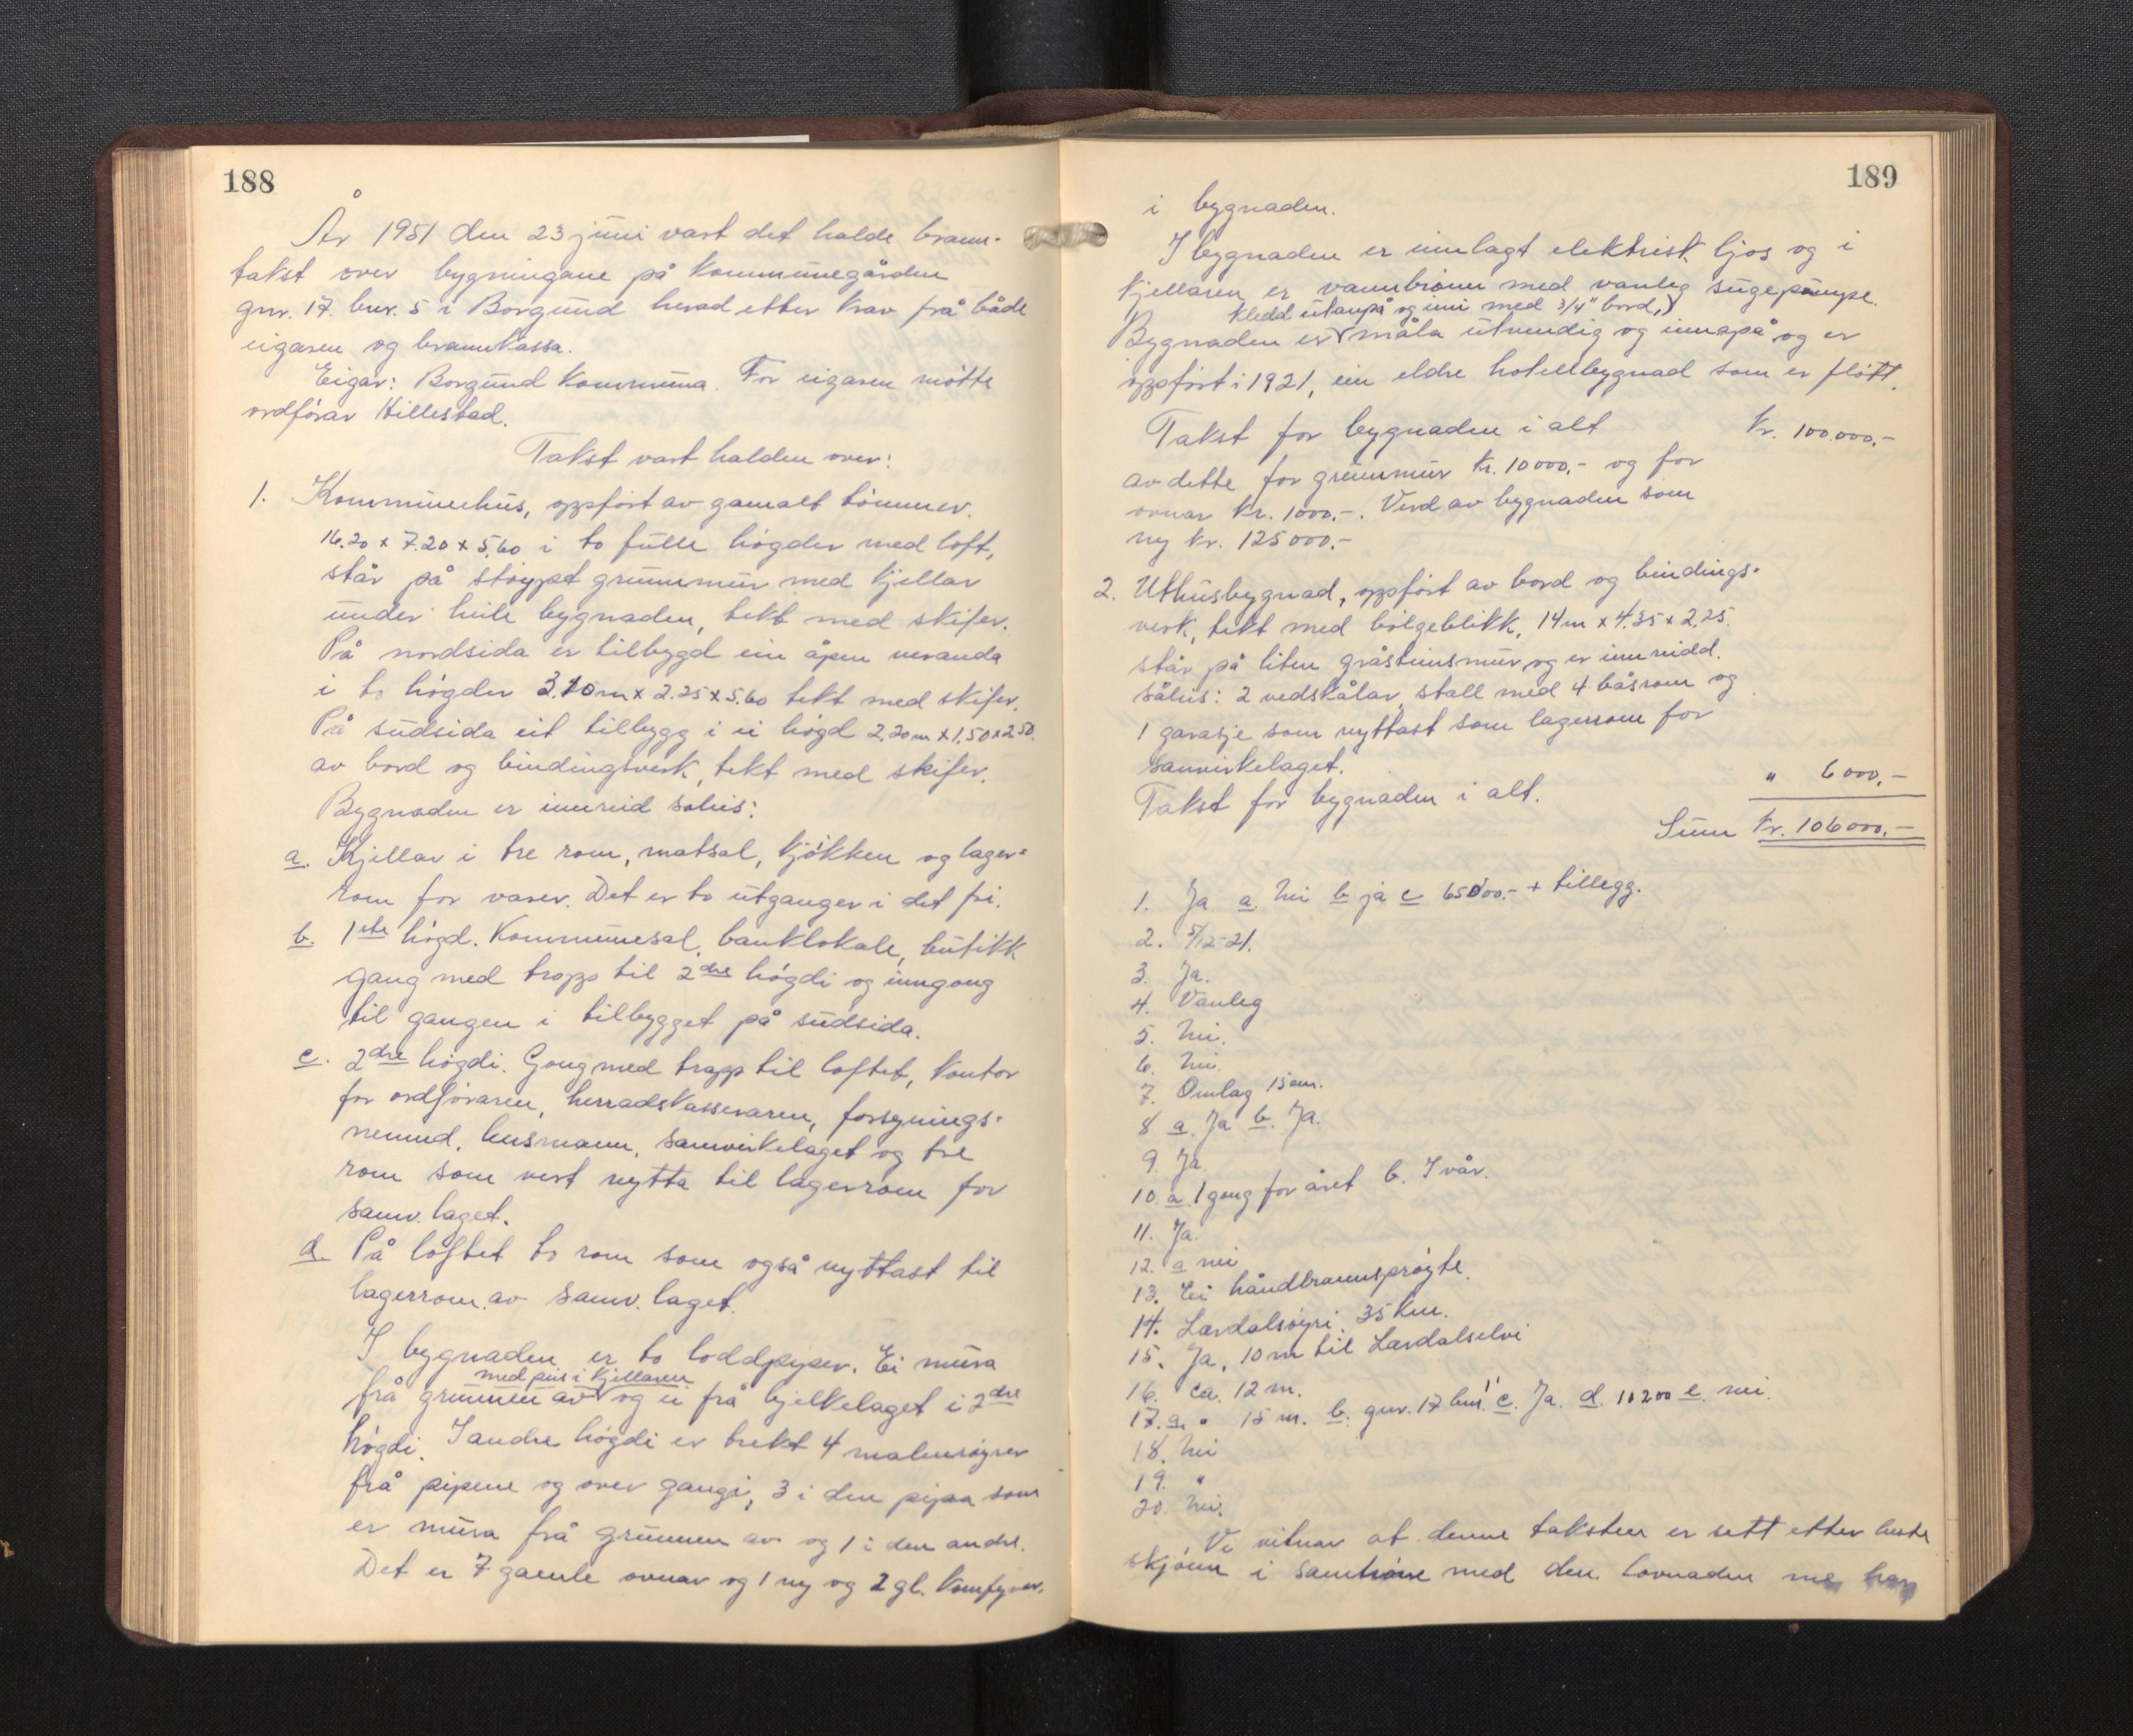 188
År 1951 den 23 juni vart det halde brann-
takst over bygningane på Kommunegården
gnr. 17. bnr. 5 i Borgund herad etter krav frå både
eigaren og brannkassa.
Eigar: Borgund Kommuna. For eigaren møtte
ordførar Hillestad.
Takst vart halden over:
1. Kommunehus, oppført av gamalt tømmer.
16.20 x 7.20 x 5.60 i to fulle høgder med loft,
står på støypt grunnmur med kjellar
under heile bygnaden, tekt med skifer.
På nordsida er tilbygd ein åpen veranda
i to høgder 3.10m x 2.25 x 5.60 tekt med skifer.
På sudsida eit tilbygg i ei høgd 2.20m x 1.50 x 2.50.
av bord og bindingsverk, tekt med skifer.
Bygnaden er innreid soleis:
a. Kjellar i tre rom, matsal, kjøkken og lager=
rom for varer. Det er to utganger i det fri.
b. 1ste høgd. Kommunesal, banklokale, butikk
gang med trapp til 2dre høgdi og inngong
til gangen i tilbygget på sudsida.
c. 2dre høgdi. Gong med trapp til loftet, kontor
for ordføraren, herradskasseraren, forsynings-
nemnd, husmann, samvirkelaget og tre
rom som vert nytta til lagerrom for
samv. laget.
d. På loftet to rom som også nyttast til
lagerrom av samv. laget.
I bygnaden er to loddpiper. Ei mura
med peis i kjellaren
frå grunnen av og ei frå bjelkelaget i 2dre
høgdi. I andre høgdi er trekt 4 malmrøyrer
frå pipene og over gangi, 3 i den pipa som
er mura frå grunnen av og 1 i den andre.
Det er 7 gamle ovnar og 1 ny og 2 gl. komfyrer,
189
i bygnaden.
I bygnaden er innlagt elektrisk ljos og i
kjellaren er vannbrønn med vanleg sugepumpe.
kledd utanpå og inni med 3/4" bord,
Bygnaden er måla utvendig og innapå og er
oppført i 1921, ein eldre hotellbygnad som er fløtt.
Takst for bygnaden i alt Kr. 100.000,-
av dette for grunnmur kr. 10000,- og for
ovnar kr. 1000,-. Verd av bygnaden som
ny kr. 125000,-
2. Uthusbygnad, oppført av bord og bindings-
verk, tekt med bølgeblikk, 14m x 4.35 x 2.25.
står på liten gråsteinsmur, og er innreidd.
såleis: 2 vedskålar, stall med 4 båsrom og
1 garasje som nyttast som lagerrom for
samvirkelaget.
Takst for bygnaden i alt. " 6000,-
Sum Kr. 106000,-
1. Ja a. Nei b ja c 65000.- + tillegg.
2. 5/12-21.
3. Ja.
4. Vanleg
5. Nei.
6. Nei.
7. Omlag 15 cm.
8 a. Ja b. Ja.
9. Ja.
10. a. 1 gong for året b. I vår.
11. Ja.
12. a nei
13. Ei håndbrannsprøyte.
14. Lærdalsøyri 35 km.
15. Ja, 10 m til Lærdalselvi
16. ca. 12 m.
17. a. " 15 m. b. gnr. 17 bnr. 1 c. Ja. d. 10200 e. nei.
18. Nei
19. "
20. Nei.
Vi vitnar at denne taksten er sett etter beste
skjønn i samhøve med den lovnaden me har